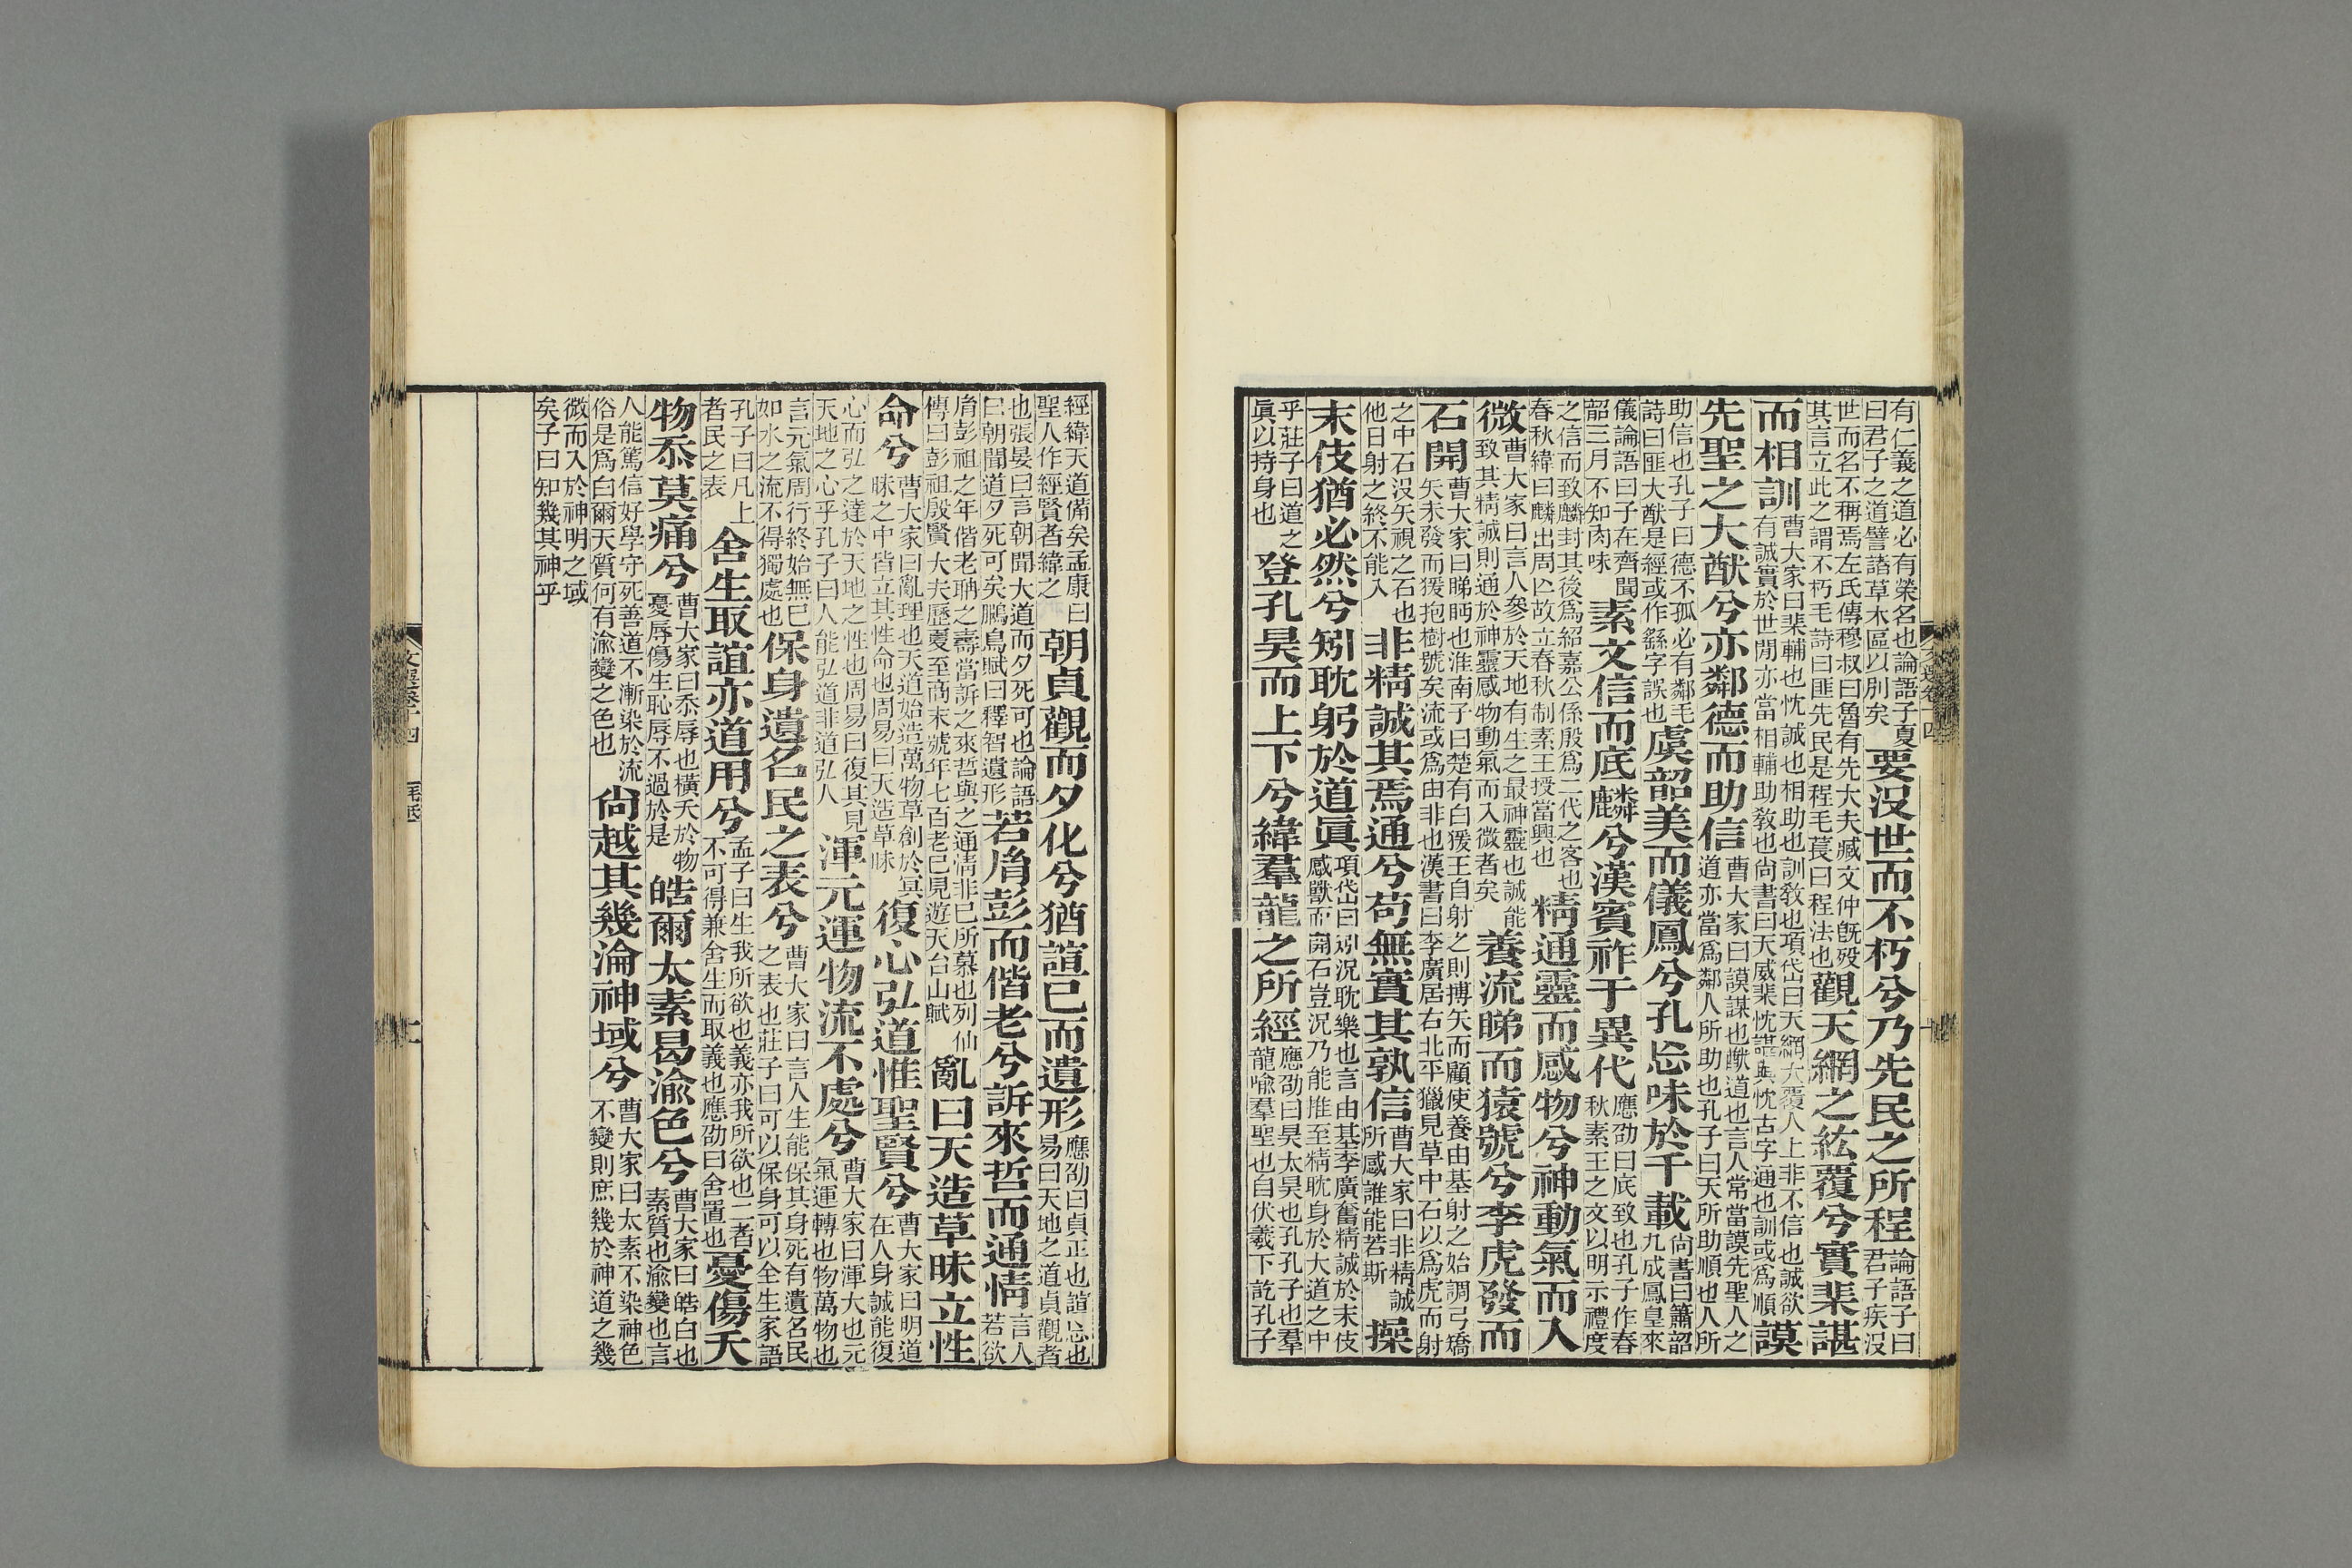 有仁義之道必有榮名也論語子夏曰君子之道譬諸草木區以別矣要沒世而不朽兮乃先民之所程論語子曰君子疾沒
世而名不稱焉左氏傳穆叔曰魯有先大夫臧文仲旣歿其言立此之謂不朽毛詩曰匪先民是程毛萇曰程法也觀天網之紘覆兮實棐諶
而相訓曹大家曰棐輔也忱誠也相助也訓敎也項岱曰天網大覆人上非不信也誠欲有誠實於世間亦當相輔助敎也尙書曰天威棐忱諶與忱古字通也訓或爲順謨
先聖之大猷兮亦鄰德而助信曹大家曰謨謀也猷道也言人常當謨先聖人之道亦當爲鄰人所助也孔子曰天所助順也人所
助信也孔子曰德不孤必有鄰毛詩曰匪大猷是經或作繇字誤也虞韶美而儀鳳兮孔忘味於千載尙書曰簫韶九成鳳皇來
儀論語曰子在齊聞韶三月不知肉味素文信而底麟兮漢賓祚于異代應劭曰底致也孔子作春秋素王之文以明示禮度
之信而致麟封其後爲紹嘉公係殷爲二代之客也春秋緯曰麟出周亾故立春秋制素王授當興也精通靈而感物兮神動氣而入
微曹大家曰言人參於天地有生之最神靈也誠能致其精誠則通於神靈感物動氣而入微者矣養流睇而猿號兮李虎發而
石開曹大家曰睇眄也淮南子曰楚有白猨王自射之則搏矢而顧使養由基射之始調弓矯矢未發而猨抱樹號矣流或爲由非也漢書曰李廣居右北平獵見草中石以爲虎而射
之中石沒矢視之石也他日射之終不能入非精誠其焉通兮苟無實其孰信曹大家曰非精誠所感誰能若斯操
末伎猶必然兮矧耽躬於道眞項岱曰矧況耽樂也言由基李廣奮精誠於末伎感獸而開石豈況乃能推至精耽身於大道之中
乎莊子曰道之眞以持身也登孔昊而上下兮緯羣龍之所經應劭曰昊太昊也孔孔子也羣龍喻羣聖也自伏羲下訖孔子
經緯天道備矣孟康曰聖人作經賢者緯之朝貞觀而夕化兮猶諠己而遺形應劭曰貞正也諠忘也易曰天地之道貞觀者
也張晏曰言朝聞大道而夕死可也論語曰朝聞道夕死可矣鵩鳥賦曰釋智遺形若胤彭而偕老兮訴來哲而通情言人若欲
胤彭祖之年偕老聃之壽當訴之來哲與之通情非己所慕也列仙傳曰彭祖殷賢大夫歷夏至商末號年七百老已見遊天台山賦亂曰天造草昧立性
命兮曹大家曰亂理也天道始造萬物草創於冥昧之中皆立其性命也周易曰天造草昧復心弘道惟聖賢兮曹大家曰明道在人身誠能復
心而弘之達於天地之性也周易曰復其見天地之心乎孔子曰人能弘道非道弘人渾元運物流不處兮曹大家曰渾大也元氣運轉也物萬物也
言元氣周行終始無已如水之流不得獨處也保身遺名民之表兮曹大家曰言人生能保其身死有遺名民之表也莊子曰可以保身可以全生家語
孔子曰凡上者民之表舍生取誼亦道用兮孟子曰生我所欲也義亦我所欲也二者不可得兼舍生而取義也應劭曰舍置也憂傷夭
物忝莫痛兮曹大家曰忝辱也橫夭於物憂辱傷生恥辱不過於是皓爾太素曷渝色兮曹大家曰皓白也素質也渝變也言
人能篤信好學守死善道不漸染於流俗是爲白爾天質何有渝變之色也尙越其幾淪神域兮曹大家曰太素不染神色不變則庶幾於神道之幾
微而入於神明之域矣子曰知幾其神乎